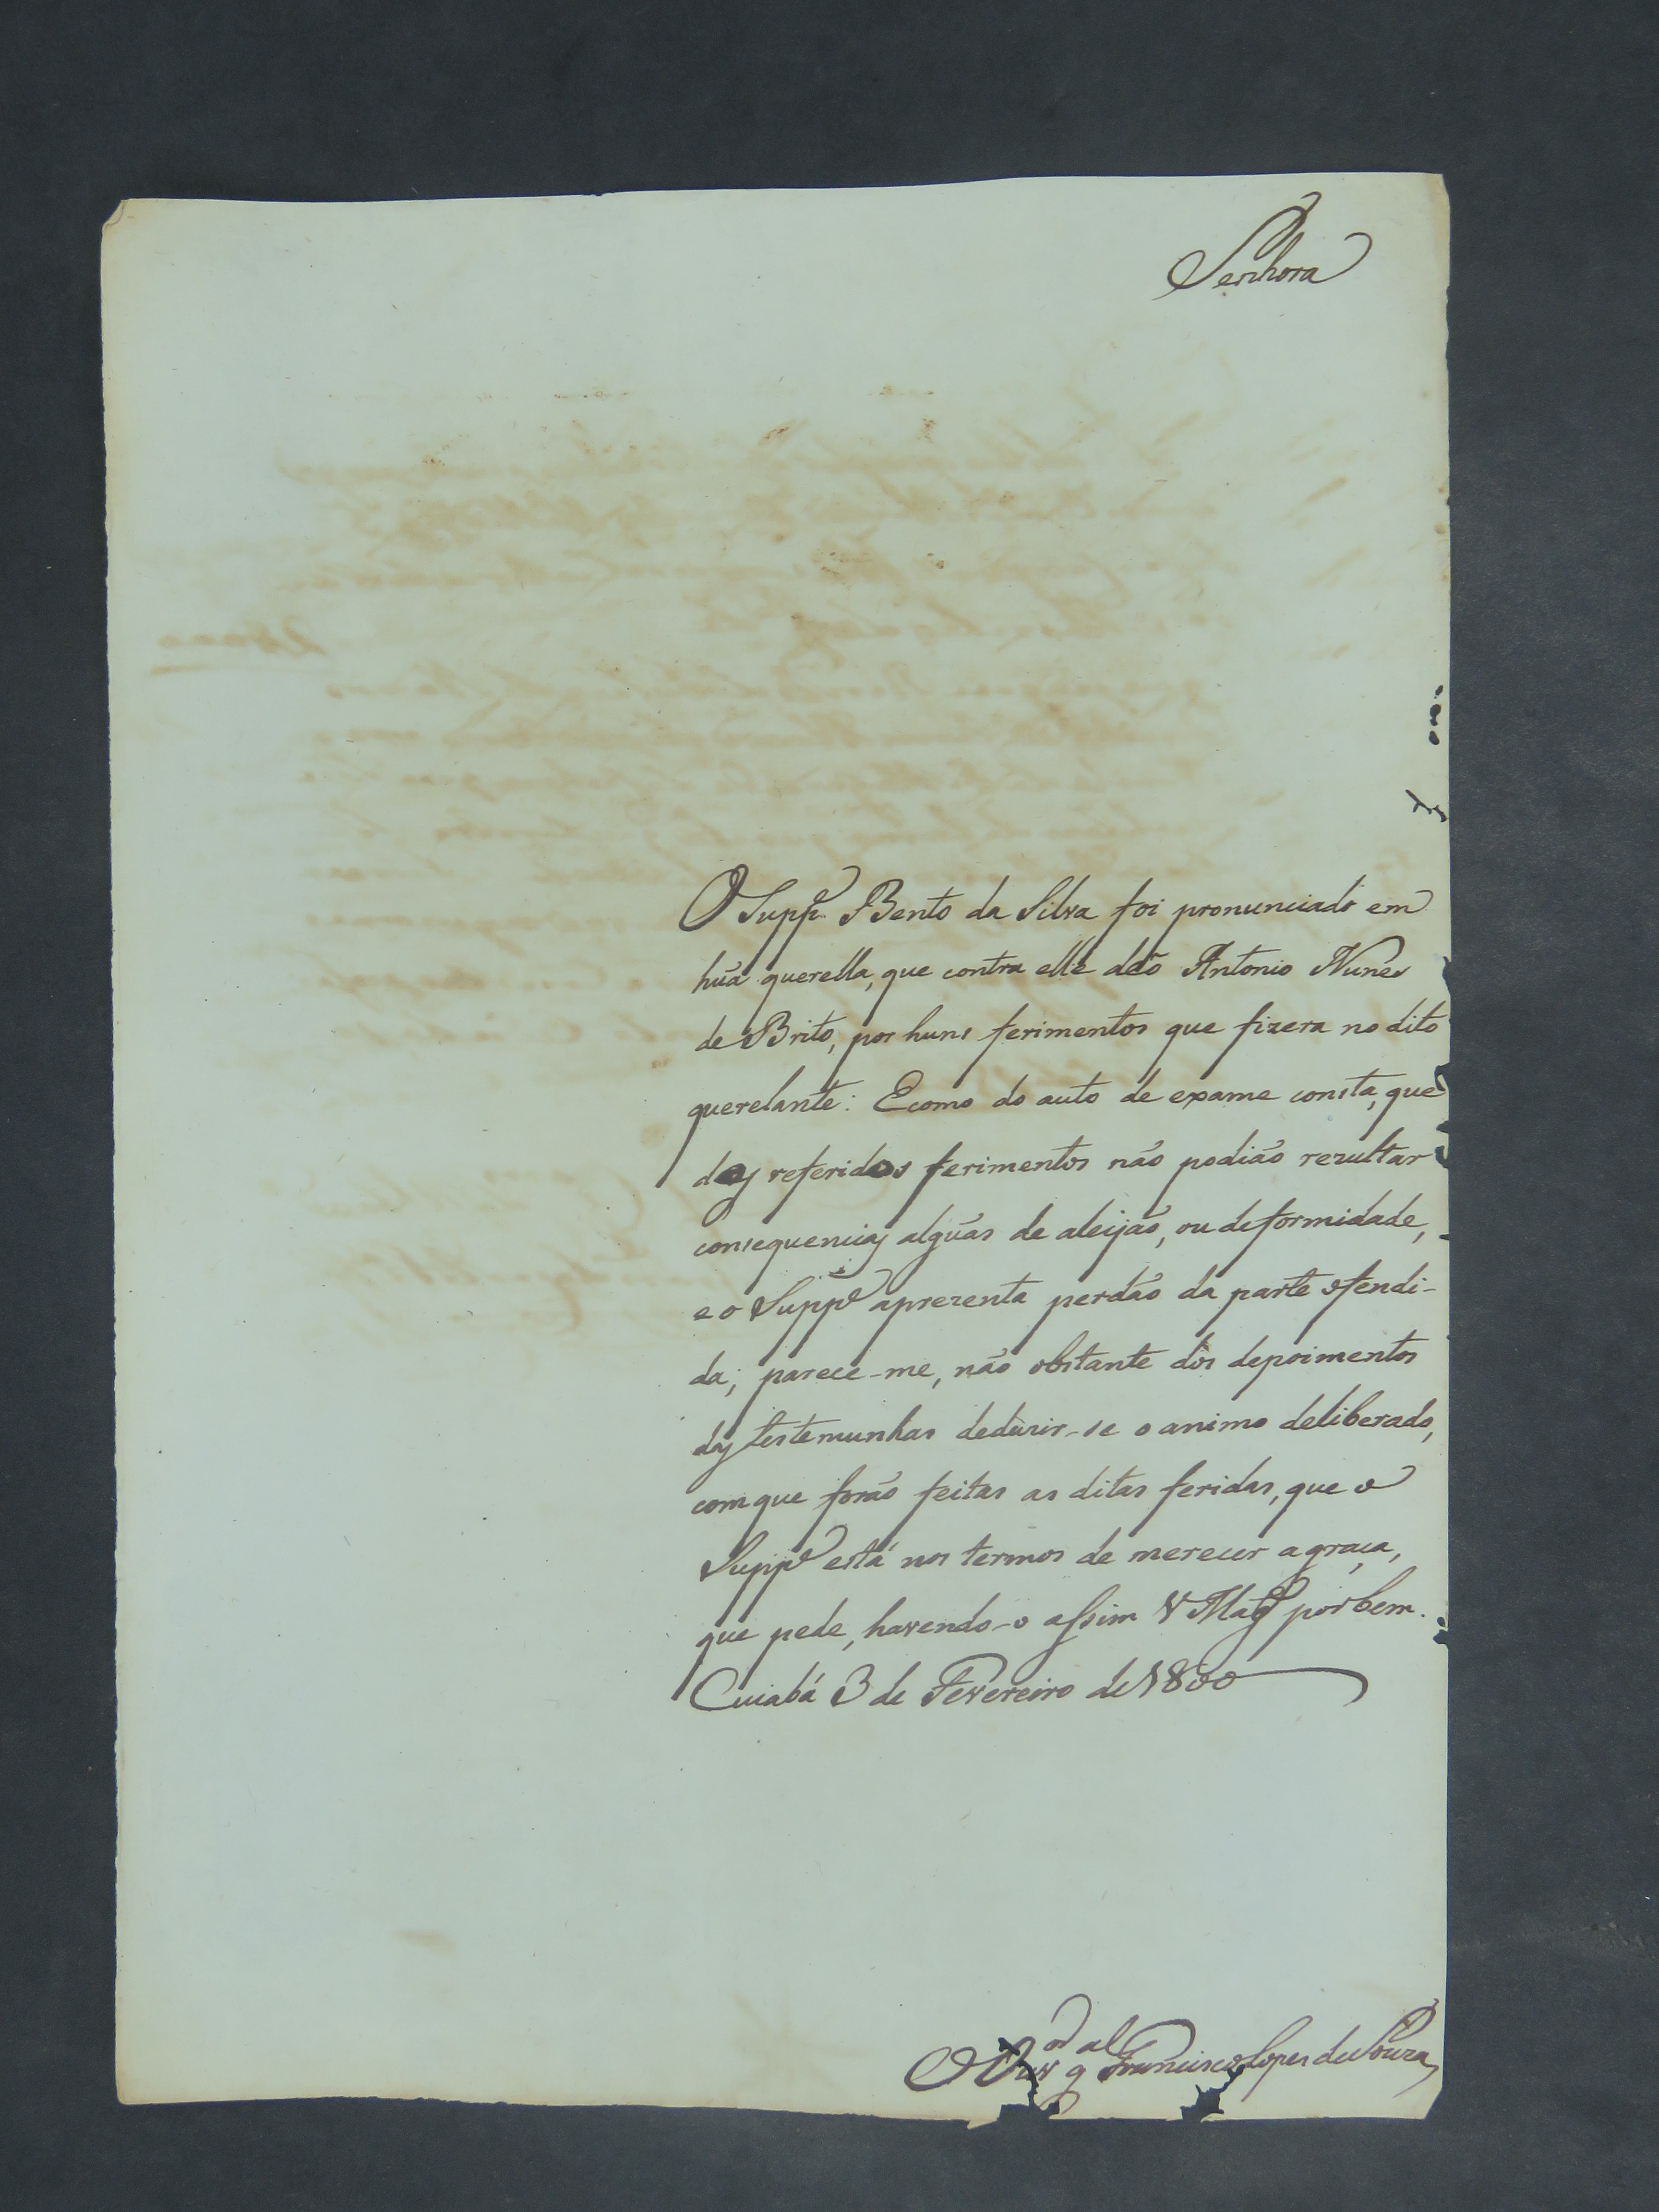 Senhora
O Supp.e Bento da Silva foi pronunciado em
hũa querella, que contra elle deo Antonio Nunes
de Brito, por huns ferimentos que fizera no dito
querelante: E como do auto de exame consta, que
dos referidos ferimentos não podião rezultar
consequencias algũas de aleijão, ou deformidade,
e o Supp.e aprezenta perdão da parte ofendi-
da; parece-me, não obstante dos depoimentos
das testemunhas deduzir-se o animo deliberado,
com que forão feitas as ditas feridas, que o
Supp.e está nos termos de merecer a graça,
que pede, havendo-o assim V Mag.e por bem.
Cuiabá 3 de Fevereiro de 1800
O Ouv.or g.al Francisco Lopes de Souza